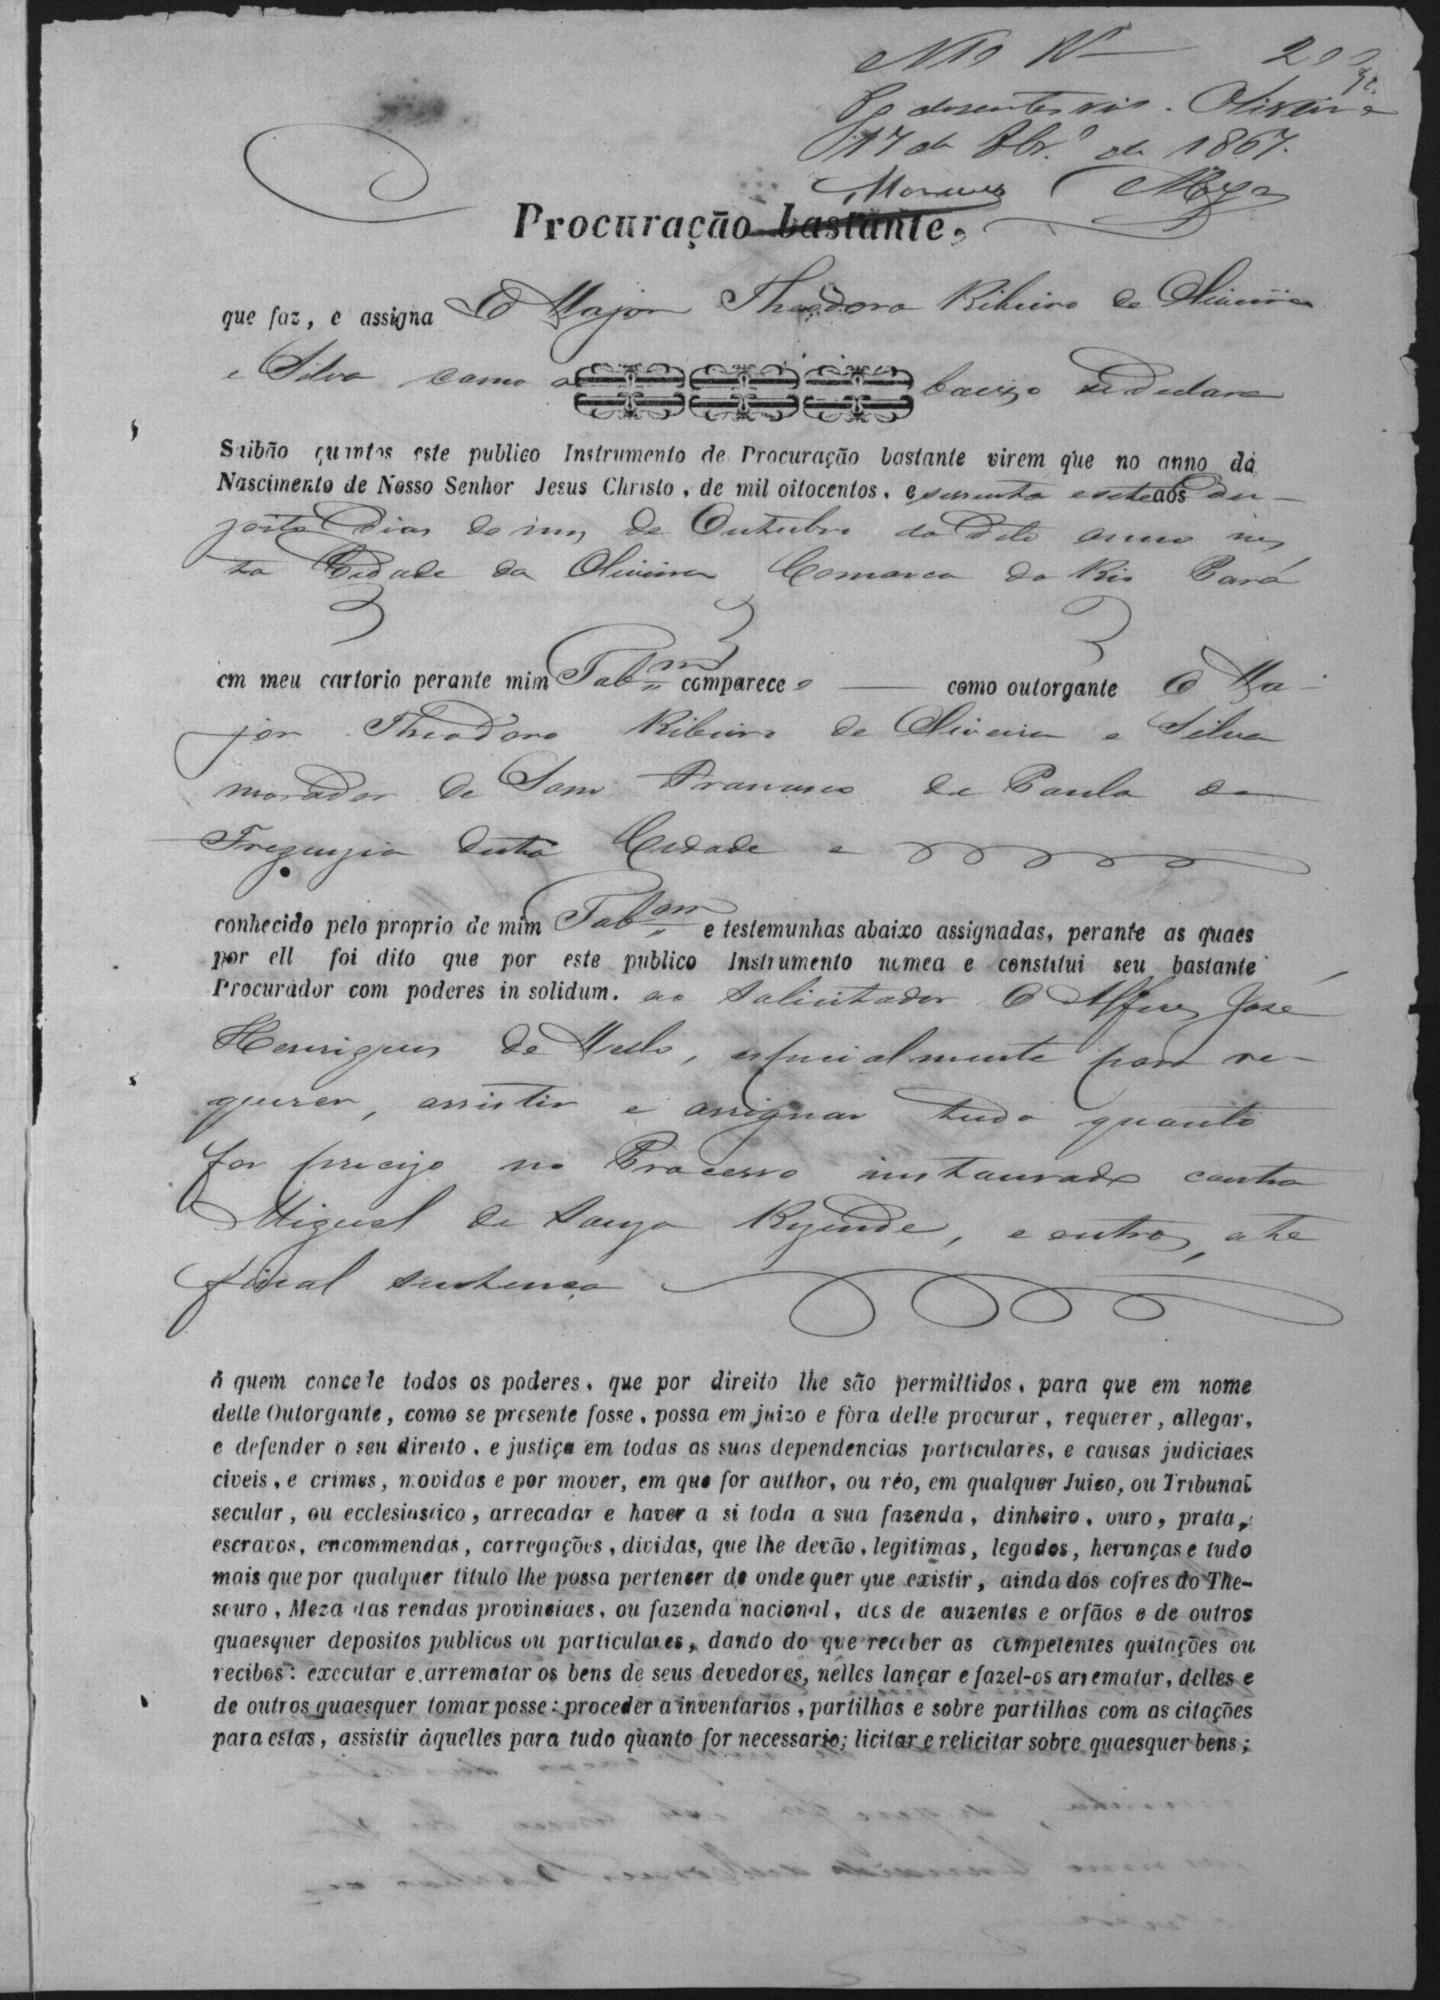 Nº 1 Rs 200
Pg dusentos reis. Oliveira
17 de Obr.º de 1867.
Procuração bastante.
que faz, e assigna O Major Theodoro Ribeiro de Oliveira
e Silva como a baixo se declara
Saibão quantos este publico Instrumento de Procuração bastante virem que no anno do
Nascimento de Nosso Senhor Jesus Christo, de mil oitocentos, e sesenta e sete aos Den-
zoito dias do mes de Outubro do dito anno nes
ta Cidade da Oliveira Comarca do Rio Pará
em meu cartorio perante mim Tab.am comparece o como outorgante O Ma-
jor Theodoro Ribeiro de Oliveira e Silva
morador de Sam Francisco de Paula da
Freguezia desta Cidade e
conhecido pelo proprio de mim Tab.am e testemunhas abaixo assignadas, perante as quaes
por ell foi dito que por este publico Instrumento nomea e constitui seu bastante
Procurador com poderes in solidum. ao Salicitador O Alferes José
Henriques de Mello, especialmente para re-
querer, assistir e assignar tudo quanto
for precizo no Processo instaurado contra
Miguel de Souza Rezende, e outros, athe
final sentença
á quem concede todos os poderes, que por direito lhe são permittidos, para que em nome
delle Outorgante, como se presente fosse, possa em juizo e fòra delle procurar, requerer, allegar,
e defender o seu direito, e justiça em todas as suas dependencias particulares, e causas judiciaes
civeis, e crimes, movidas e por mover, em que for author, ou réo, em qualquer Juizo, ou Tribunal
secular, ou ecclesiastico, arrecadar e haver a si toda a sua fazenda, dinheiro, ouro, prata,
escravos, encommendas, carregações, dividas, que lhe devão, legitimas, legados, heranças e tudo
mais que por qualquer titulo lhe possa pertencer de onde quer que existir, ainda dos cofres do The-
souro, Meza das rendas provinciaes, ou fazenda nacional, dos de auzentes e orfãos e de outros
quaesquer depositos publicos ou particulares, dando do que receber as competentes quitações ou
recibos: executar e arrematar os bens de seus devedores, nelles lançar e fazel-os arrematar, delles e
de outros quaesquer tomar posse: proceder a inventarios, partilhas e sobre partilhas com as citações
para estas, assistir áquelles para tudo quanto for necessario; licitar e relicitar sobre quaesquer bens;